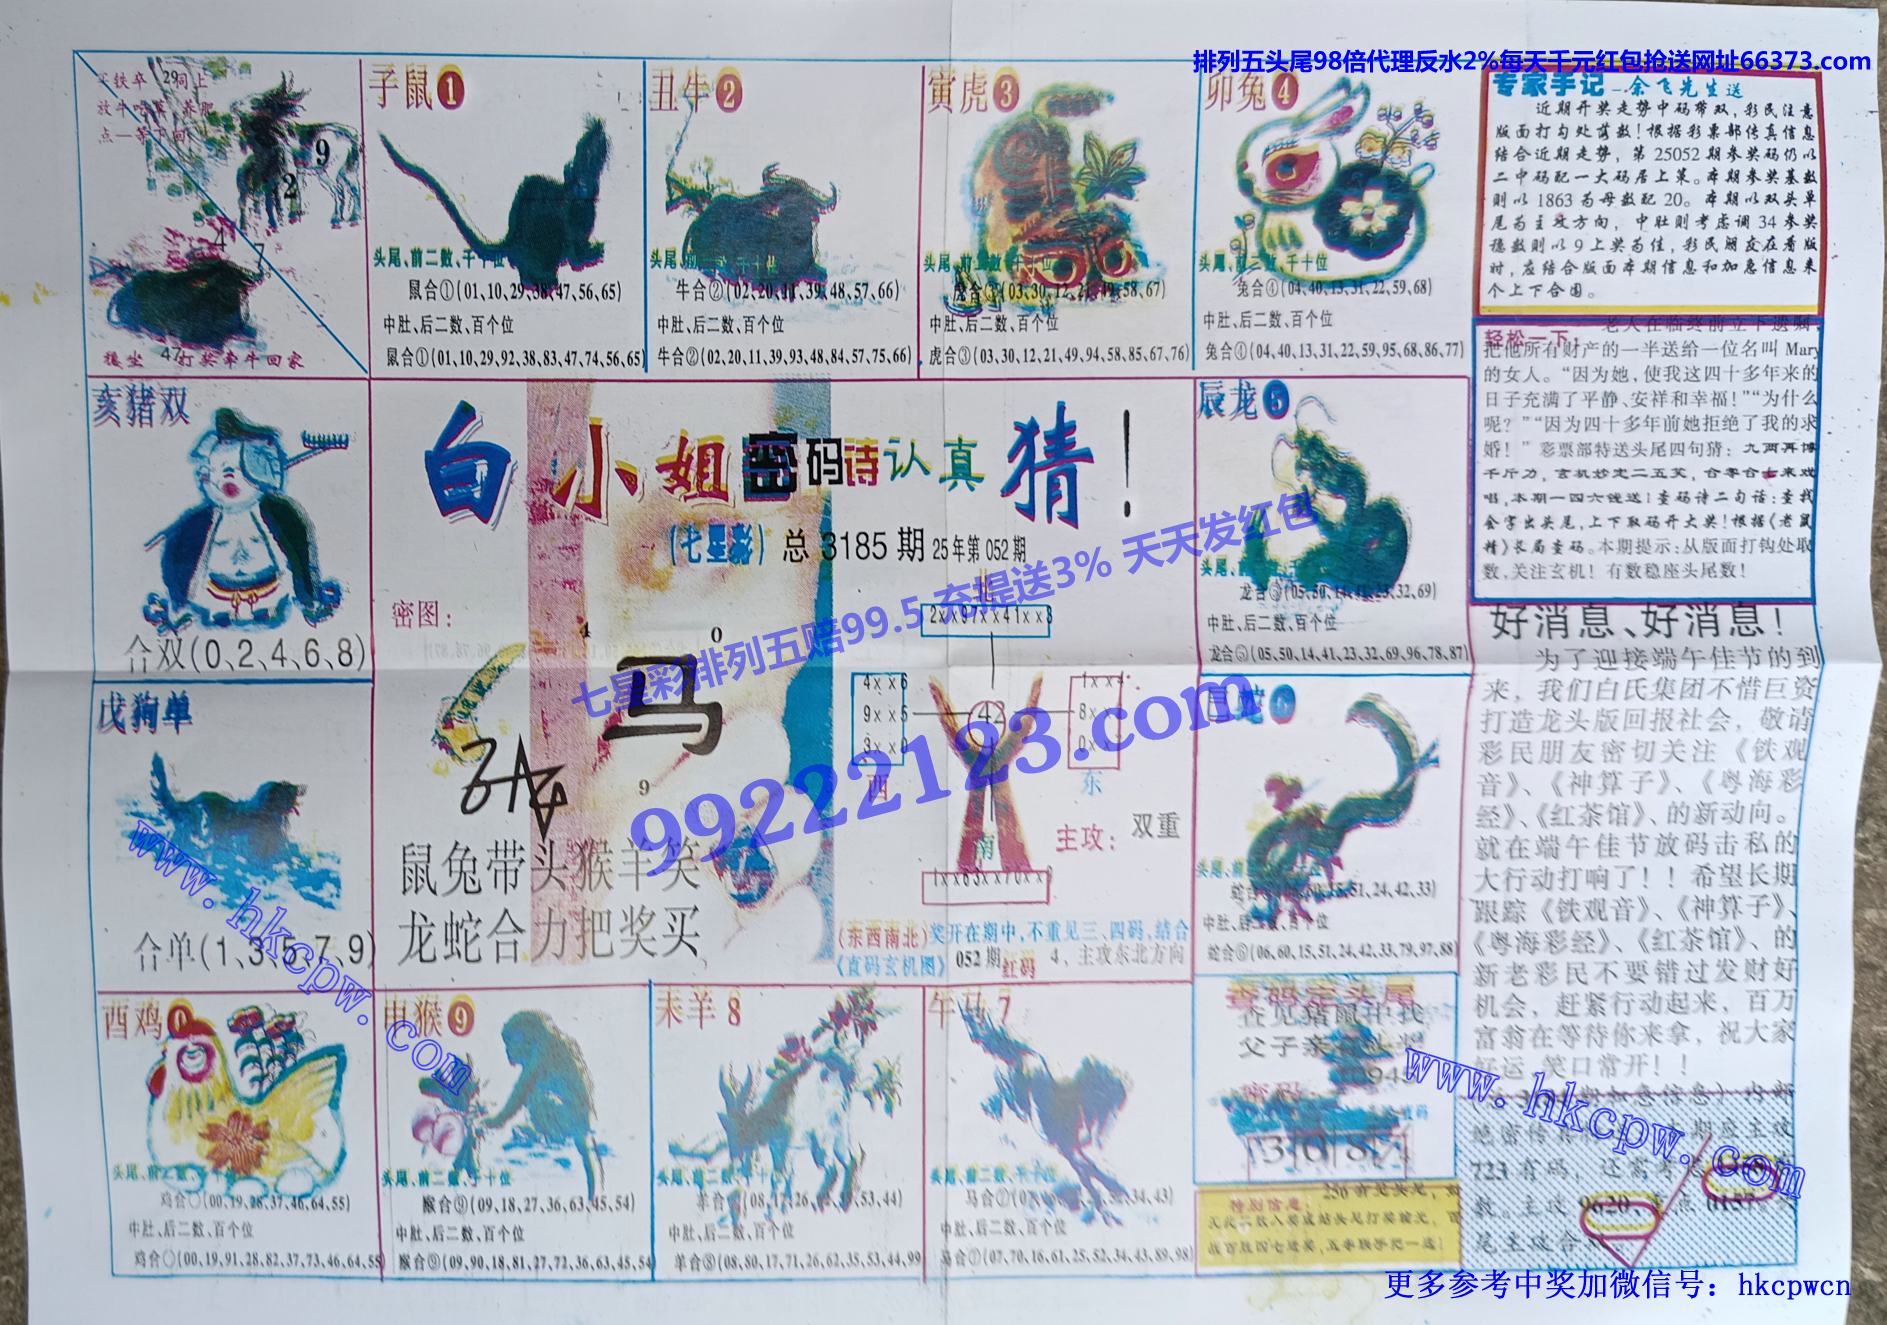 排列五头尾98倍代理反水2%每天千元红包抢送网址66373.com
9
2
4
7
47 打奖牵牛回家
子鼠1
头尾、前二数、千十位
鼠合①(01、10、29、38、47、56、65)
中肚、后二数、百个位
鼠合①(01、10、29、92、38、83、47、74、56、65)
丑牛2
牛合②(02、20、11、39、48、57、66)
中肚、后二数、百个位
牛合②(02、20、11、39、93、48、84、57、75、66)
寅虎3
虎合③(03、30、12、21、49、58、67)
中肚、后二数、百个位
虎合③(03、30、12、21、49、94、58、85、67、76)
卯兔4
兔合④(04、40、13、31、22、59、68)
中肚、后二数、百个位
兔合④(04、40、13、31、22、59、95、68、86、77)
专家手记—余飞先生送
近期开奖走势中码带双,彩民注意
版面打勾处荫数!根据彩票部传真信息
结合近期走势,第25052期参奖码仍以
二中码配一大码居上策。本期参奖基数
则以1863为母数配20。本期以双头单
尾为主攻方向,中肚则考虑调34参奖
稳数则以9上奖为佳,彩民朋友在看版
时,应结合版面本期信息和加急信息来
个上下合围。
轻松一下:
老人在临终前立下遗嘱,
把他所有财产的一半送给一位名叫Mary
的女人。“因为她,使我这四十多年来的
日子充满了平静、安祥和幸福!”“为什么
呢?”“因为四十多年前她拒绝了我的求
婚!” 彩票部特送头尾四句猜:九两再博
千斤力,玄机妙定二五奖,合零合七来戏
唱,本期一四六钱送!查码诗二句话:查找
金字出头尾,上下取码开大奖!根据《老鼠
精》长局查码。本期提示:从版面打钩处取
数,关注玄机!有数稳座头尾数!
亥猪双
合双(0、2、4、6、8)
戊狗单
合单(1、3、5、7、9)
白小姐密码诗认真猜!
(七星彩) 总3185期 25年第052期
密图:
4
0
马
9
鼠兔带头猴羊笑
龙蛇合力把奖买
北
2x×97x×41x×3
4x×6
9x×5
西
42
8x×
东
南
主攻: 双重
(东西南北)奖开在期中,不重见三、四码,结合
《直码玄机图》 052期红码 4,主攻东北方向
七星彩排列五赔99.5 充提送3% 天天发红包
99222123.com
辰龙5
中肚、后二数、百个位
龙合⑤(05、50、14、41、23、32、69、96、78、87)
巳蛇6
中肚、后二数、百个位
蛇合⑥(06、60、15、51、24、42、33、79、97、88)
好消息、好消息!
为了迎接端午佳节的到
来,我们白氏集团不惜巨资
打造龙头版回报社会,敬请
彩民朋友密切关注《铁观
音》、《神算子》、《粤海彩
经》、《红茶馆》、的新动向。
就在端午佳节放码击私的
大行动打响了!!希望长期
跟踪《铁观音》、《神算子》、
《粤海彩经》、《红茶馆》、的
新老彩民不要错过发财好
机会,赶紧行动起来,百万
富翁在等待你来拿,祝大家
好运,笑口常开!!
酉鸡0
鸡合〇(00、19、28、37、46、64、55)
中肚、后二数、百个位
鸡合〇(00、19、91、28、82、37、73、46、64、55)
申猴9
猴合⑨(09、18、27、36、63、45、54)
中肚、后二数、百个位
猴合⑨(09、90、18、81、27、72、36、63、45、54)
未羊8
中肚、后二数、百个位
羊合⑧(08、80、17、71、26、62、35、53、44、99)
午马7
中肚、后二数、百个位
马合⑦(07、70、16、61、25、52、34、43、89、98)
查码定头尾
特别信息:
723有码,
www.hkcpw.com
www.hkcpw.com
更多参考中奖加微信号:hkcpwcn